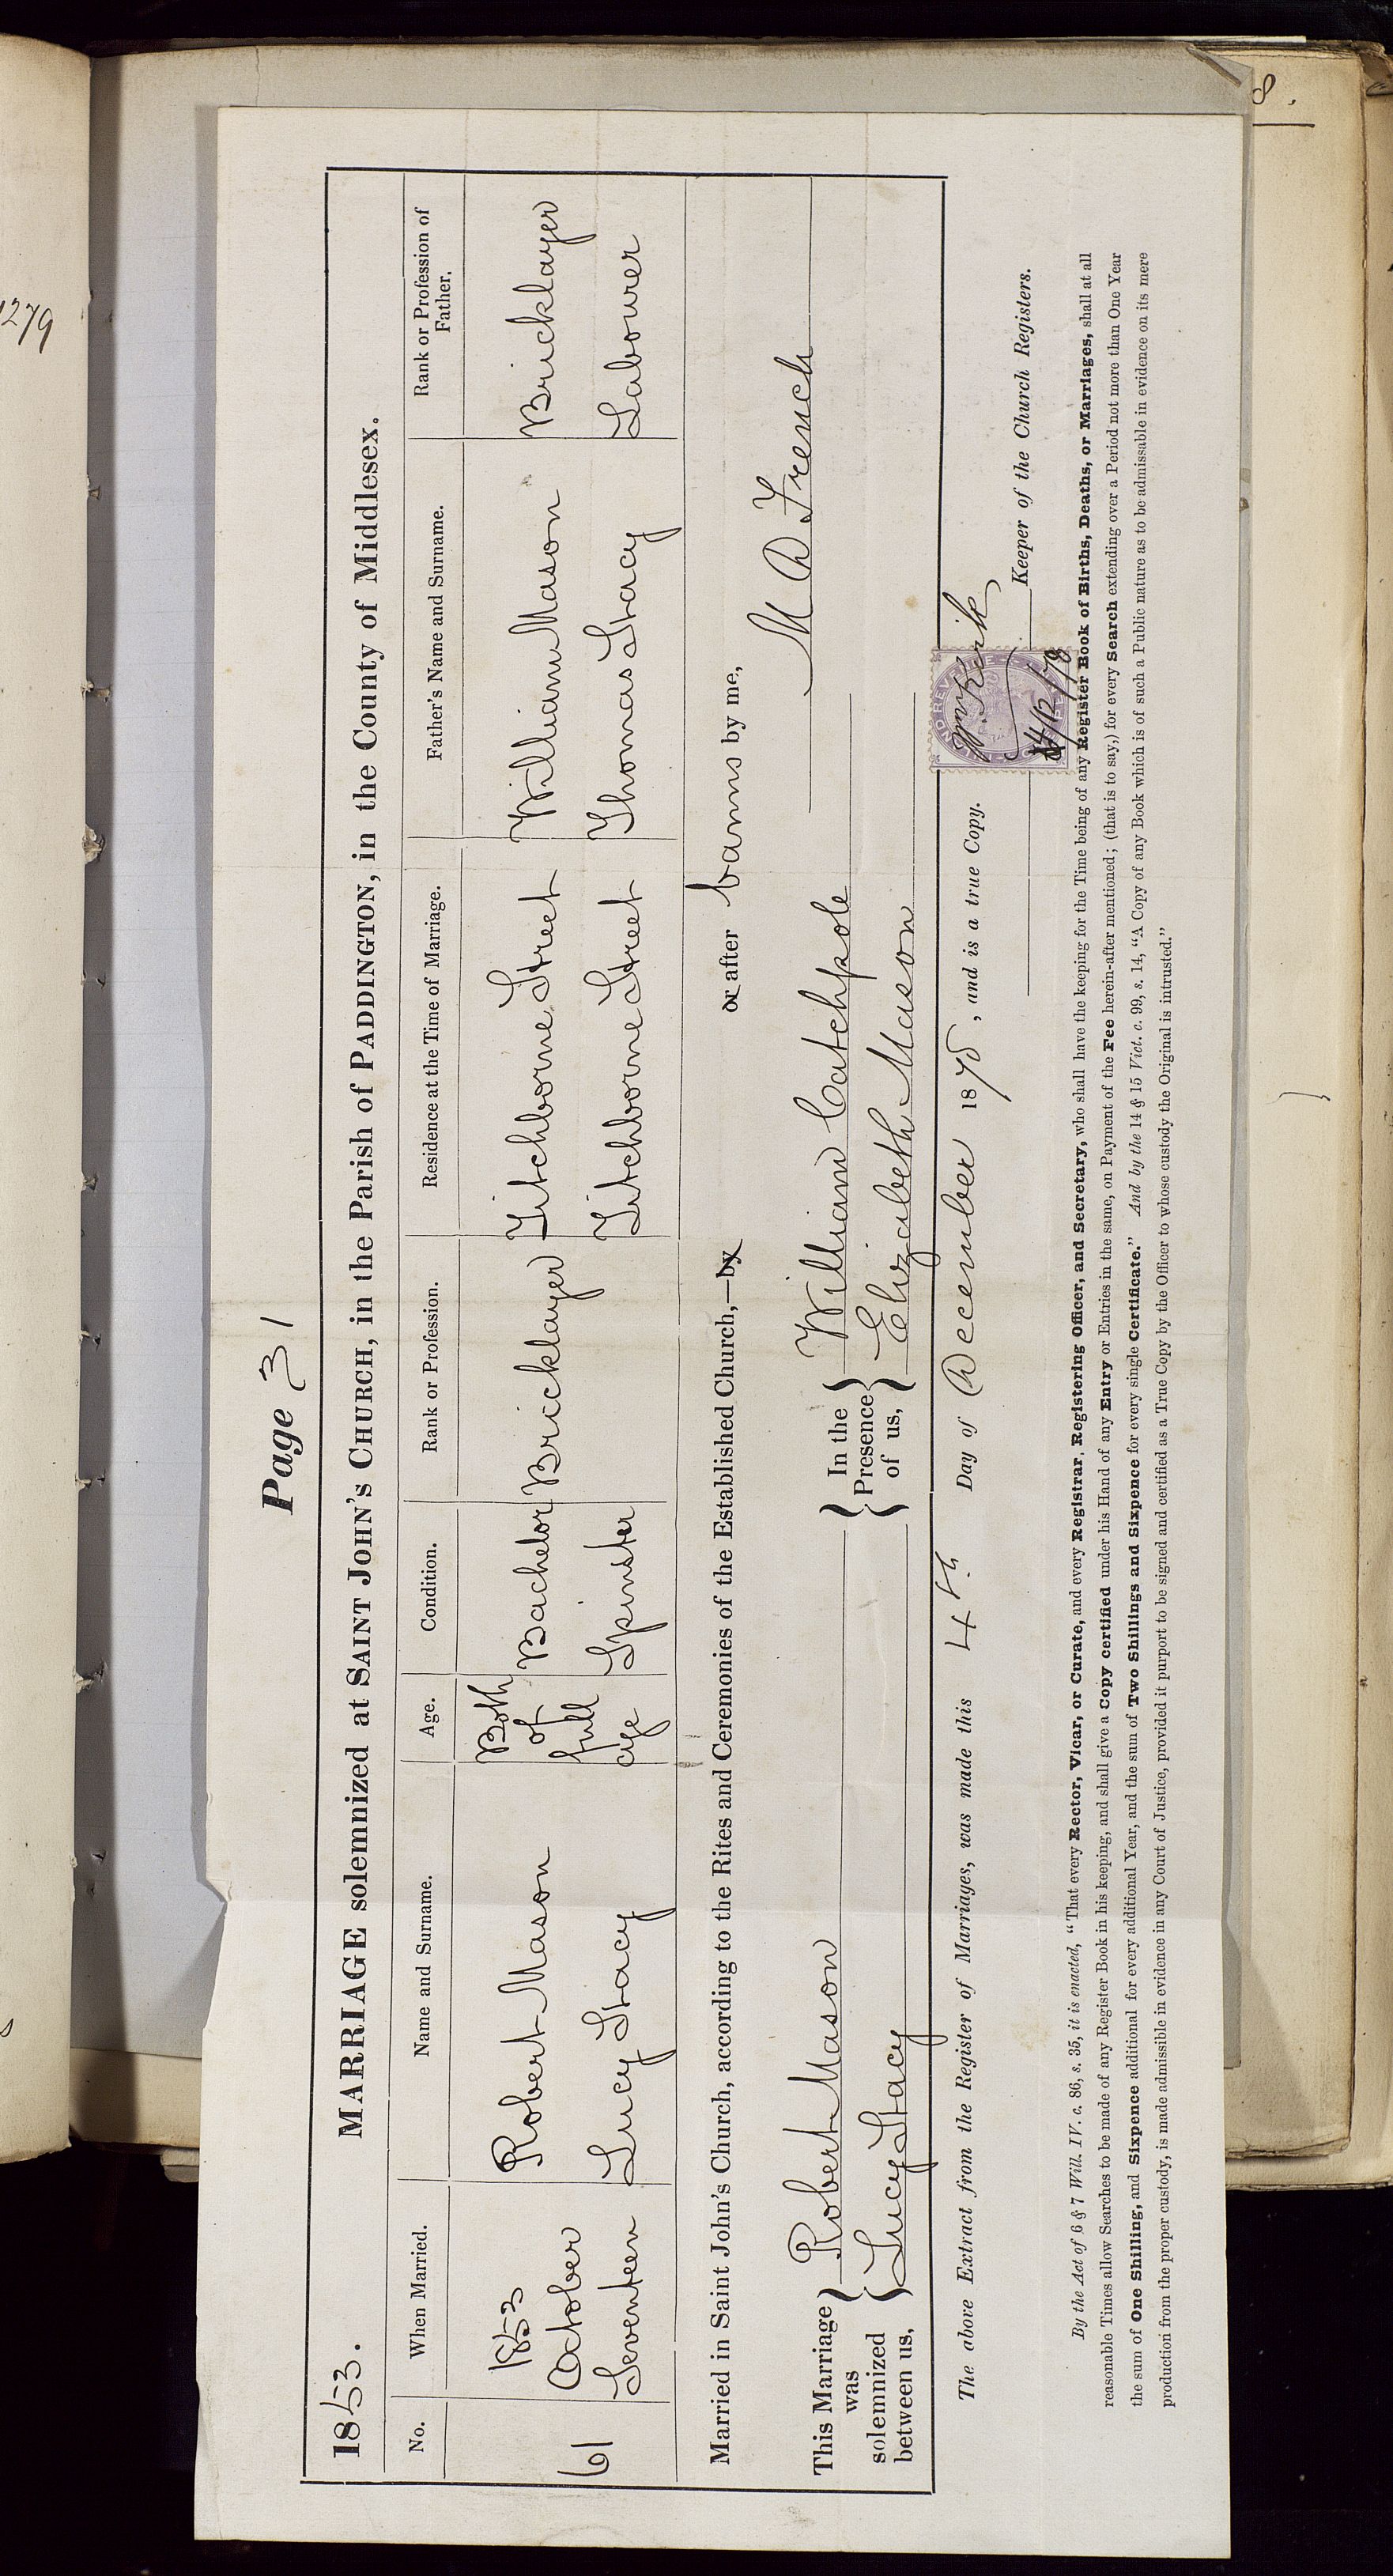 1279
8.
Page 31
1853. MARRIAGE solemnized at SAINT JOHN'S CHURCH, in the Parish of PADDINGTON, in the County of Middlesex.
No. When Married. Name and Surname. Age. Condition. Rank or Profession. Residence at the Time of Marriage. Father's Name and Surname. Rank or Profession of Father.
61
1853
October
Seventeen
Robert Mason
Lucy Stacy
Both
of
full
age
Bachelor
Spinster
Bricklayer
Titchborne Street
Titchborne Street
William Mason
Thomas Stacy
Bricklayer
Labourer
Married in Saint John's Church, according to the Rites and Ceremonies of the Established Church,—by or after banns by me,
M D French
This Marriage
was
solemnized
between us,
Robert Mason
Lucy Stacy
In the
Presence
of us,
William Catchpole
Elizabeth Mason
The above Extract from the Register of Marriages, was made this 4th Day of December 1878, and is a true Copy.
4/12/78
Keeper of the Church Registers.
By the Act of 6 & 7 Will. IV. c. 86, s. 35, it is enacted, "That every Rector, Vicar, or Curate, and every Registrar, Registering Officer, and Secretary, who shall have the keeping for the Time being of any Register Book of Births, Deaths, or Marriages, shall at all
reasonable Times allow Searches to be made of any Register Book in his keeping, and shall give a Copy certified under his Hand of any Entry or Entries in the same, on Payment of the Fee herein-after mentioned; (that is to say,) for every Search extending over a Period not more than One Year
the sum of One Shilling, and Sixpence additional for every additional Year, and the sum of Two Shillings and Sixpence for every single Certificate." And by the 14 & 15 Vict. c. 99, s. 14, "A Copy of any Book which is of such a Public nature as to be admissable in evidence on its mere
production from the proper custody, is made admissible in evidence in any Court of Justice, provided it purport to be signed and certified as a True Copy by the Officer to whose custody the Original is intrusted."